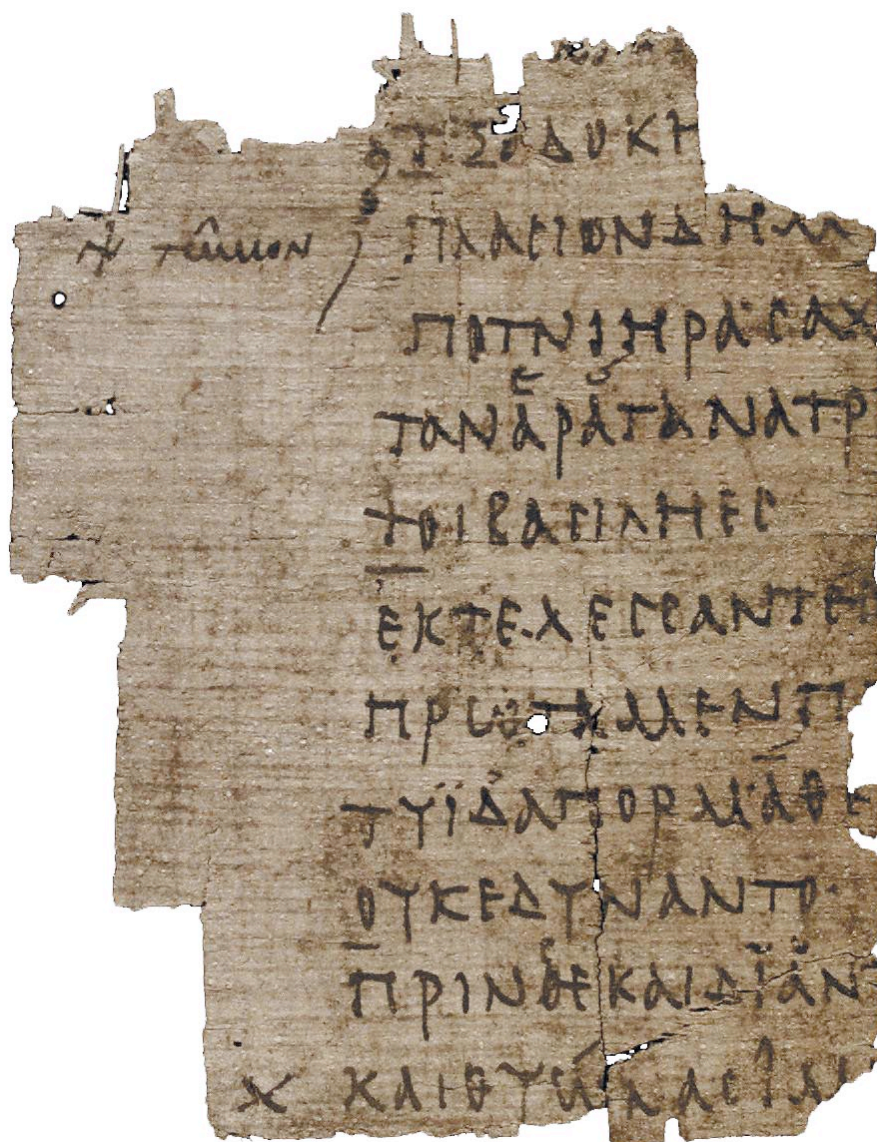 ΠΛΑCΙΟΝΔΗΜ
ΠΟΤΝΙΗΡΑCΑΧ
ΤΑΝΑΡΑΤΑΝΑΤΡ
ΤΟΙΒΑCΙΛΗΕC
ΕΚΤΕΛΕCCΑΝΤΕC
ΠΡΩΤΑΜΕΝΠ
ΤΥΪΔΑΠΟΡΜΑΘΕ
ΟΥΚΕΔΥΝΑΝΤΟ·
ΠΡΙΝCΕΚΑΙΔΙΑΝΤ
Χ ΚΑΙΘΥΩΝΑCΙΜ